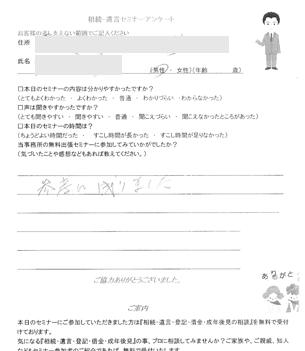 相続・遺言セミナーアンケート
お客様の差し支えない範囲でご記入ください
住所
氏名
(男性 ・ 女性)(年齢　　歳)
□本日のセミナーの内容は分かりやすかったですか?
(とてもよくわかった ・ よくわかった ・ 普通 ・ わかりづらい ・わからなかった)
□声は聞きやすかったですか?
(とても聞きやすい ・ 聞きやすい ・ 普通 ・ 聞こえづらい ・ 聞こえなかったところがあった)
□本日のセミナーの時間は?
(ちょうどよい時間だった ・ すこし時間が長かった ・ すこし時間が足りなかった)
当事務所の無料出張セミナーに参加してみていかがでしたか?
(気づいたことや感想などもあれば教えてください。)
参考に成りました
ご協力ありがとうございました。
ありがと
ご案内
本日のセミナーにご参加していただきました方は『相続・遺言・登記・借金・成年後見の相談』を無料で受け
付けております。
気になる『相続・遺言・登記・借金・成年後見』の事、プロに相談してみませんか?ご家族や、ご親戚、知人